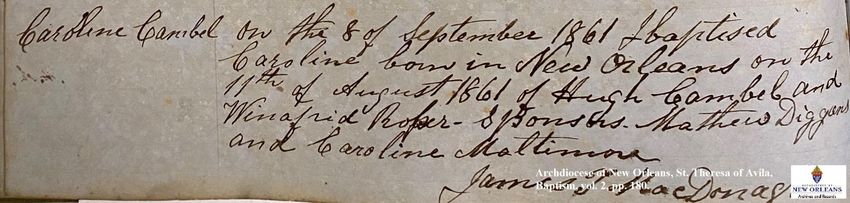 Caroline Cambel on the 8 of September 1861 I baptised
Caroline born in New Orleans on the
11th of August 1861 of Hugh Cambel and
Winafrid Roper - Sponsors - Mathew Diggans
and Caroline Maltimore
James MacDonagh
Archdiocese of New Orleans, St. Theresa of Avila,
Baptism, vol. 2, pp. 180.
ARCHDIOCESE OF
NEW ORLEANS
Archives and Records